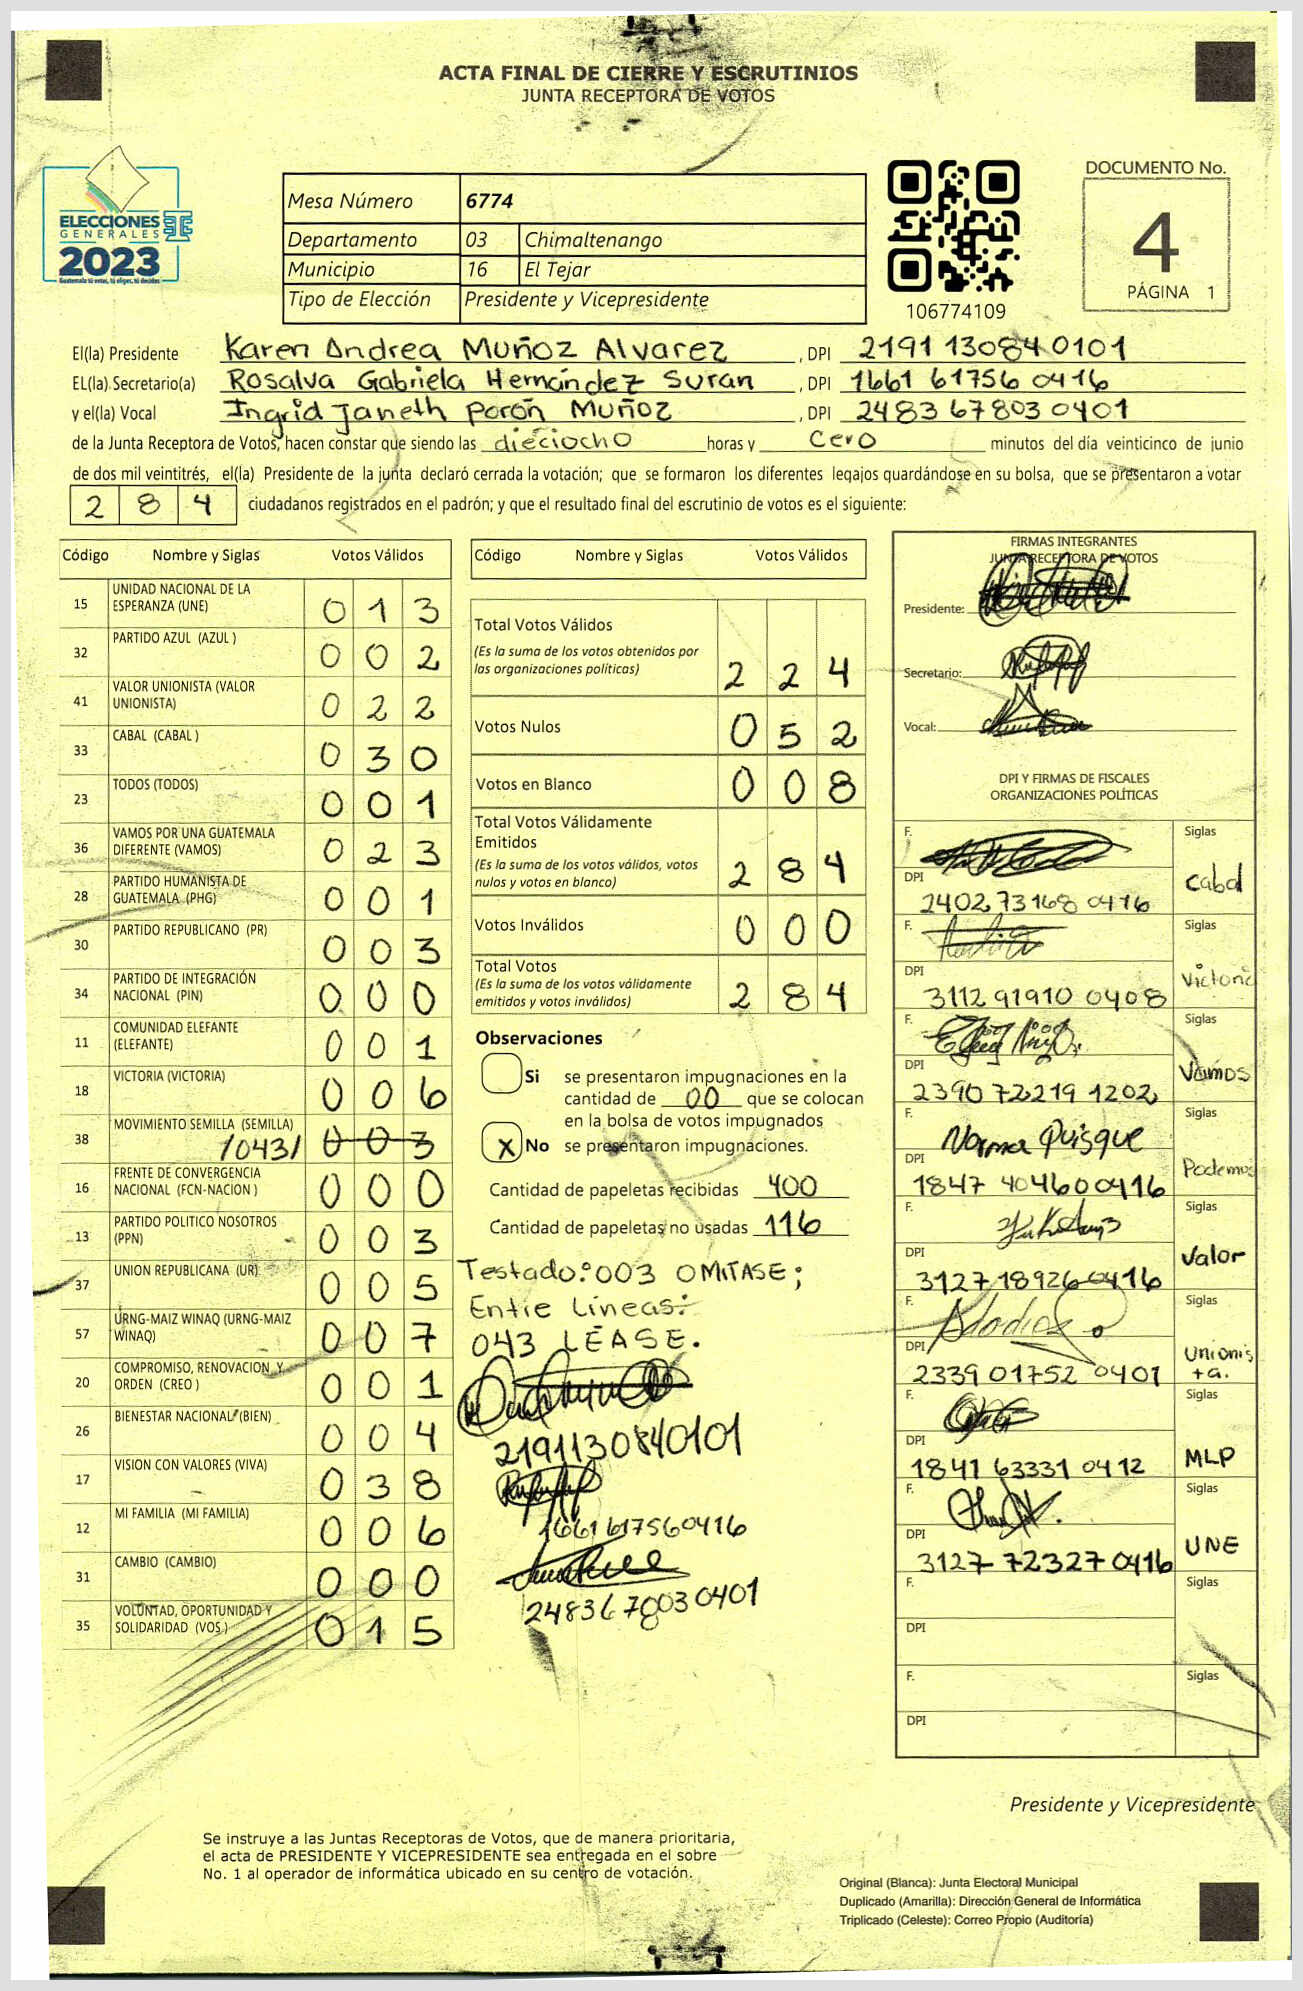 ACTA FINAL DE CIERRE Y ESCRUTINIOS
JUNTA RECEPTORA DE VOTOS
ELECCIONES
GENERALES
2023
Guatemala tú votas, tú eliges, tú decides
Mesa Número 6774
Departamento 03 Chimaltenango
Municipio 16 El Tejar
Tipo de Elección Presidente y Vicepresidente
106774109
DOCUMENTO No.
4
PÁGINA 1
El(la) Presidente Karen Andrea Muñoz Alvarez, DPI 2191 13084 0101
EL(la) Secretario(a) Rosalva Gabriela Hernández Suran, DPI 1661 61756 0416
y el(la) Vocal Ingrid Janeth Porón Muñoz, DPI 2483 67803 0401
de la Junta Receptora de Votos, hacen constar que siendo las dieciocho horas y cero minutos del día veinticinco de junio
de dos mil veintitrés, el(la) Presidente de la junta declaró cerrada la votación; que se formaron los diferentes legajos guardándose en su bolsa, que se presentaron a votar
284 ciudadanos registrados en el padrón; y que el resultado final del escrutinio de votos es el siguiente:
Código Nombre y Siglas Votos Válidos
15 UNIDAD NACIONAL DE LA ESPERANZA (UNE) 013
32 PARTIDO AZUL (AZUL ) 002
41 VALOR UNIONISTA (VALOR UNIONISTA) 022
33 CABAL (CABAL ) 030
23 TODOS (TODOS) 001
36 VAMOS POR UNA GUATEMALA DIFERENTE (VAMOS) 023
28 PARTIDO HUMANISTA DE GUATEMALA (PHG) 001
30 PARTIDO REPUBLICANO (PR) 003
34 PARTIDO DE INTEGRACIÓN NACIONAL (PIN) 000
11 COMUNIDAD ELEFANTE (ELEFANTE) 001
18 VICTORIA (VICTORIA) 006
38 MOVIMIENTO SEMILLA (SEMILLA) /043/ 003
16 FRENTE DE CONVERGENCIA NACIONAL (FCN-NACION ) 000
13 PARTIDO POLITICO NOSOTROS (PPN) 003
37 UNION REPUBLICANA (UR) 005
57 URNG-MAIZ WINAQ (URNG-MAIZ WINAQ) 007
20 COMPROMISO, RENOVACION Y ORDEN (CREO ) 001
26 BIENESTAR NACIONAL (BIEN) 004
17 VISION CON VALORES (VIVA) 038
12 MI FAMILIA (MI FAMILIA) 006
31 CAMBIO (CAMBIO) 000
35 VOLUNTAD, OPORTUNIDAD Y SOLIDARIDAD (VOS ) 015
Código Nombre y Siglas Votos Válidos
Total Votos Válidos
(Es la suma de los votos obtenidos por
las organizaciones políticas) 224
Votos Nulos 052
Votos en Blanco 008
Total Votos Válidamente
Emitidos
(Es la suma de los votos válidos, votos
nulos y votos en blanco) 284
Votos Inválidos 000
Total Votos
(Es la suma de los votos válidamente
emitidos y votos inválidos) 284
Observaciones
Si se presentaron impugnaciones en la
cantidad de 00 que se colocan
en la bolsa de votos impugnados
X No se presentaron impugnaciones.
Cantidad de papeletas recibidas 400
Cantidad de papeletas no usadas 116
Testado: 003 OMITASE;
Entre Lineas:
043 LÉASE.
2191130840101
1661617560416
2483678030401
FIRMAS INTEGRANTES
JUNTA RECEPTORA DE VOTOS
Presidente:
Secretario:
Vocal:
DPI Y FIRMAS DE FISCALES
ORGANIZACIONES POLÍTICAS
F. Siglas
DPI 2402 73168 0416 Cabal
F. Siglas
DPI 3112 91910 0408 Victoria
F. Siglas
DPI 2390 72219 1202 Vamos
F. Norma Quisque Siglas
DPI 1847 40460 0416 Podemos
F. Siglas
DPI 3127 18926 0416 Valor
F. Siglas
DPI 2339 01752 0401 Unionista.
F. Siglas
DPI 1841 63331 0412 MLP
F. Siglas
DPI 3127 72327 0416 UNE
F. Siglas
DPI
F. Siglas
DPI
Presidente y Vicepresidente
Se instruye a las Juntas Receptoras de Votos, que de manera prioritaria,
el acta de PRESIDENTE Y VICEPRESIDENTE sea entregada en el sobre
No. 1 al operador de informática ubicado en su centro de votación.
Original (Blanca): Junta Electoral Municipal
Duplicado (Amarilla): Dirección General de Informática
Triplicado (Celeste): Correo Propio (Auditoría)